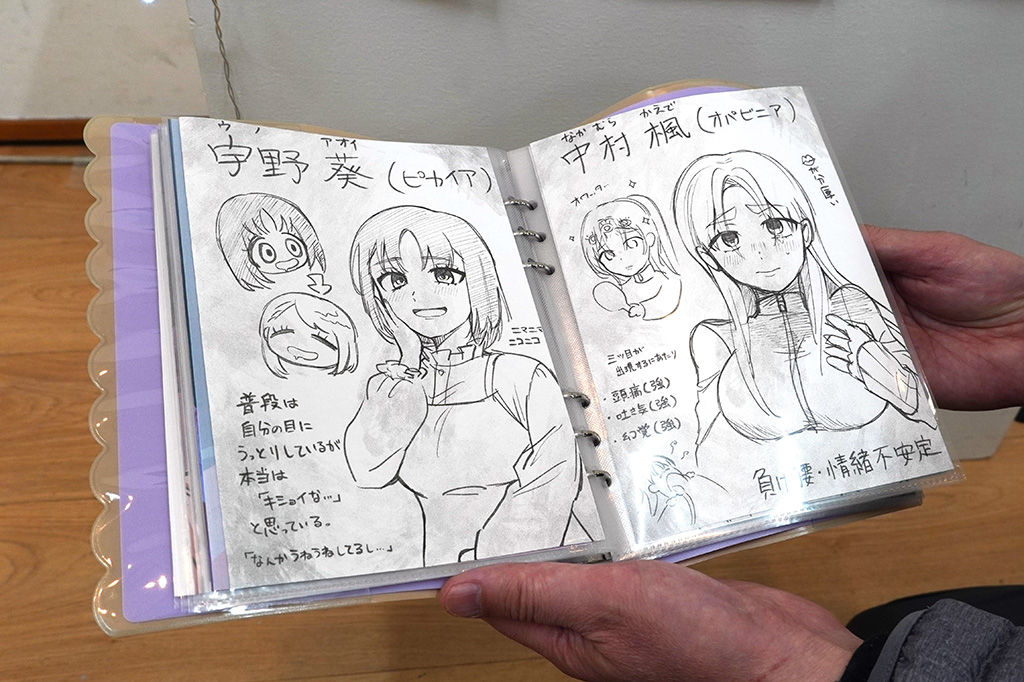 ウノ アオイ
宇野 葵(ピカイア)
ニマニマ
ニコニコ
普段は
自分の目に
うっとりしているが
本当は
「キショイな…」
と思っている。
「なんかうねうねしてるし…」
なかむら かえで
中村 楓(オパビニア)
オワーター
三ツ目が
出現するにあたり
・頭痛(強)
・吐き気(強)
・幻覚(強)
負け腰・情緒不安定